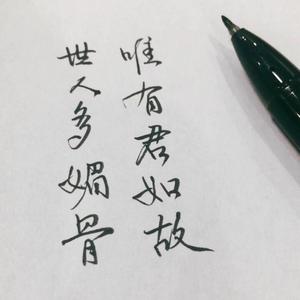 世人多媚骨
唯有君如故